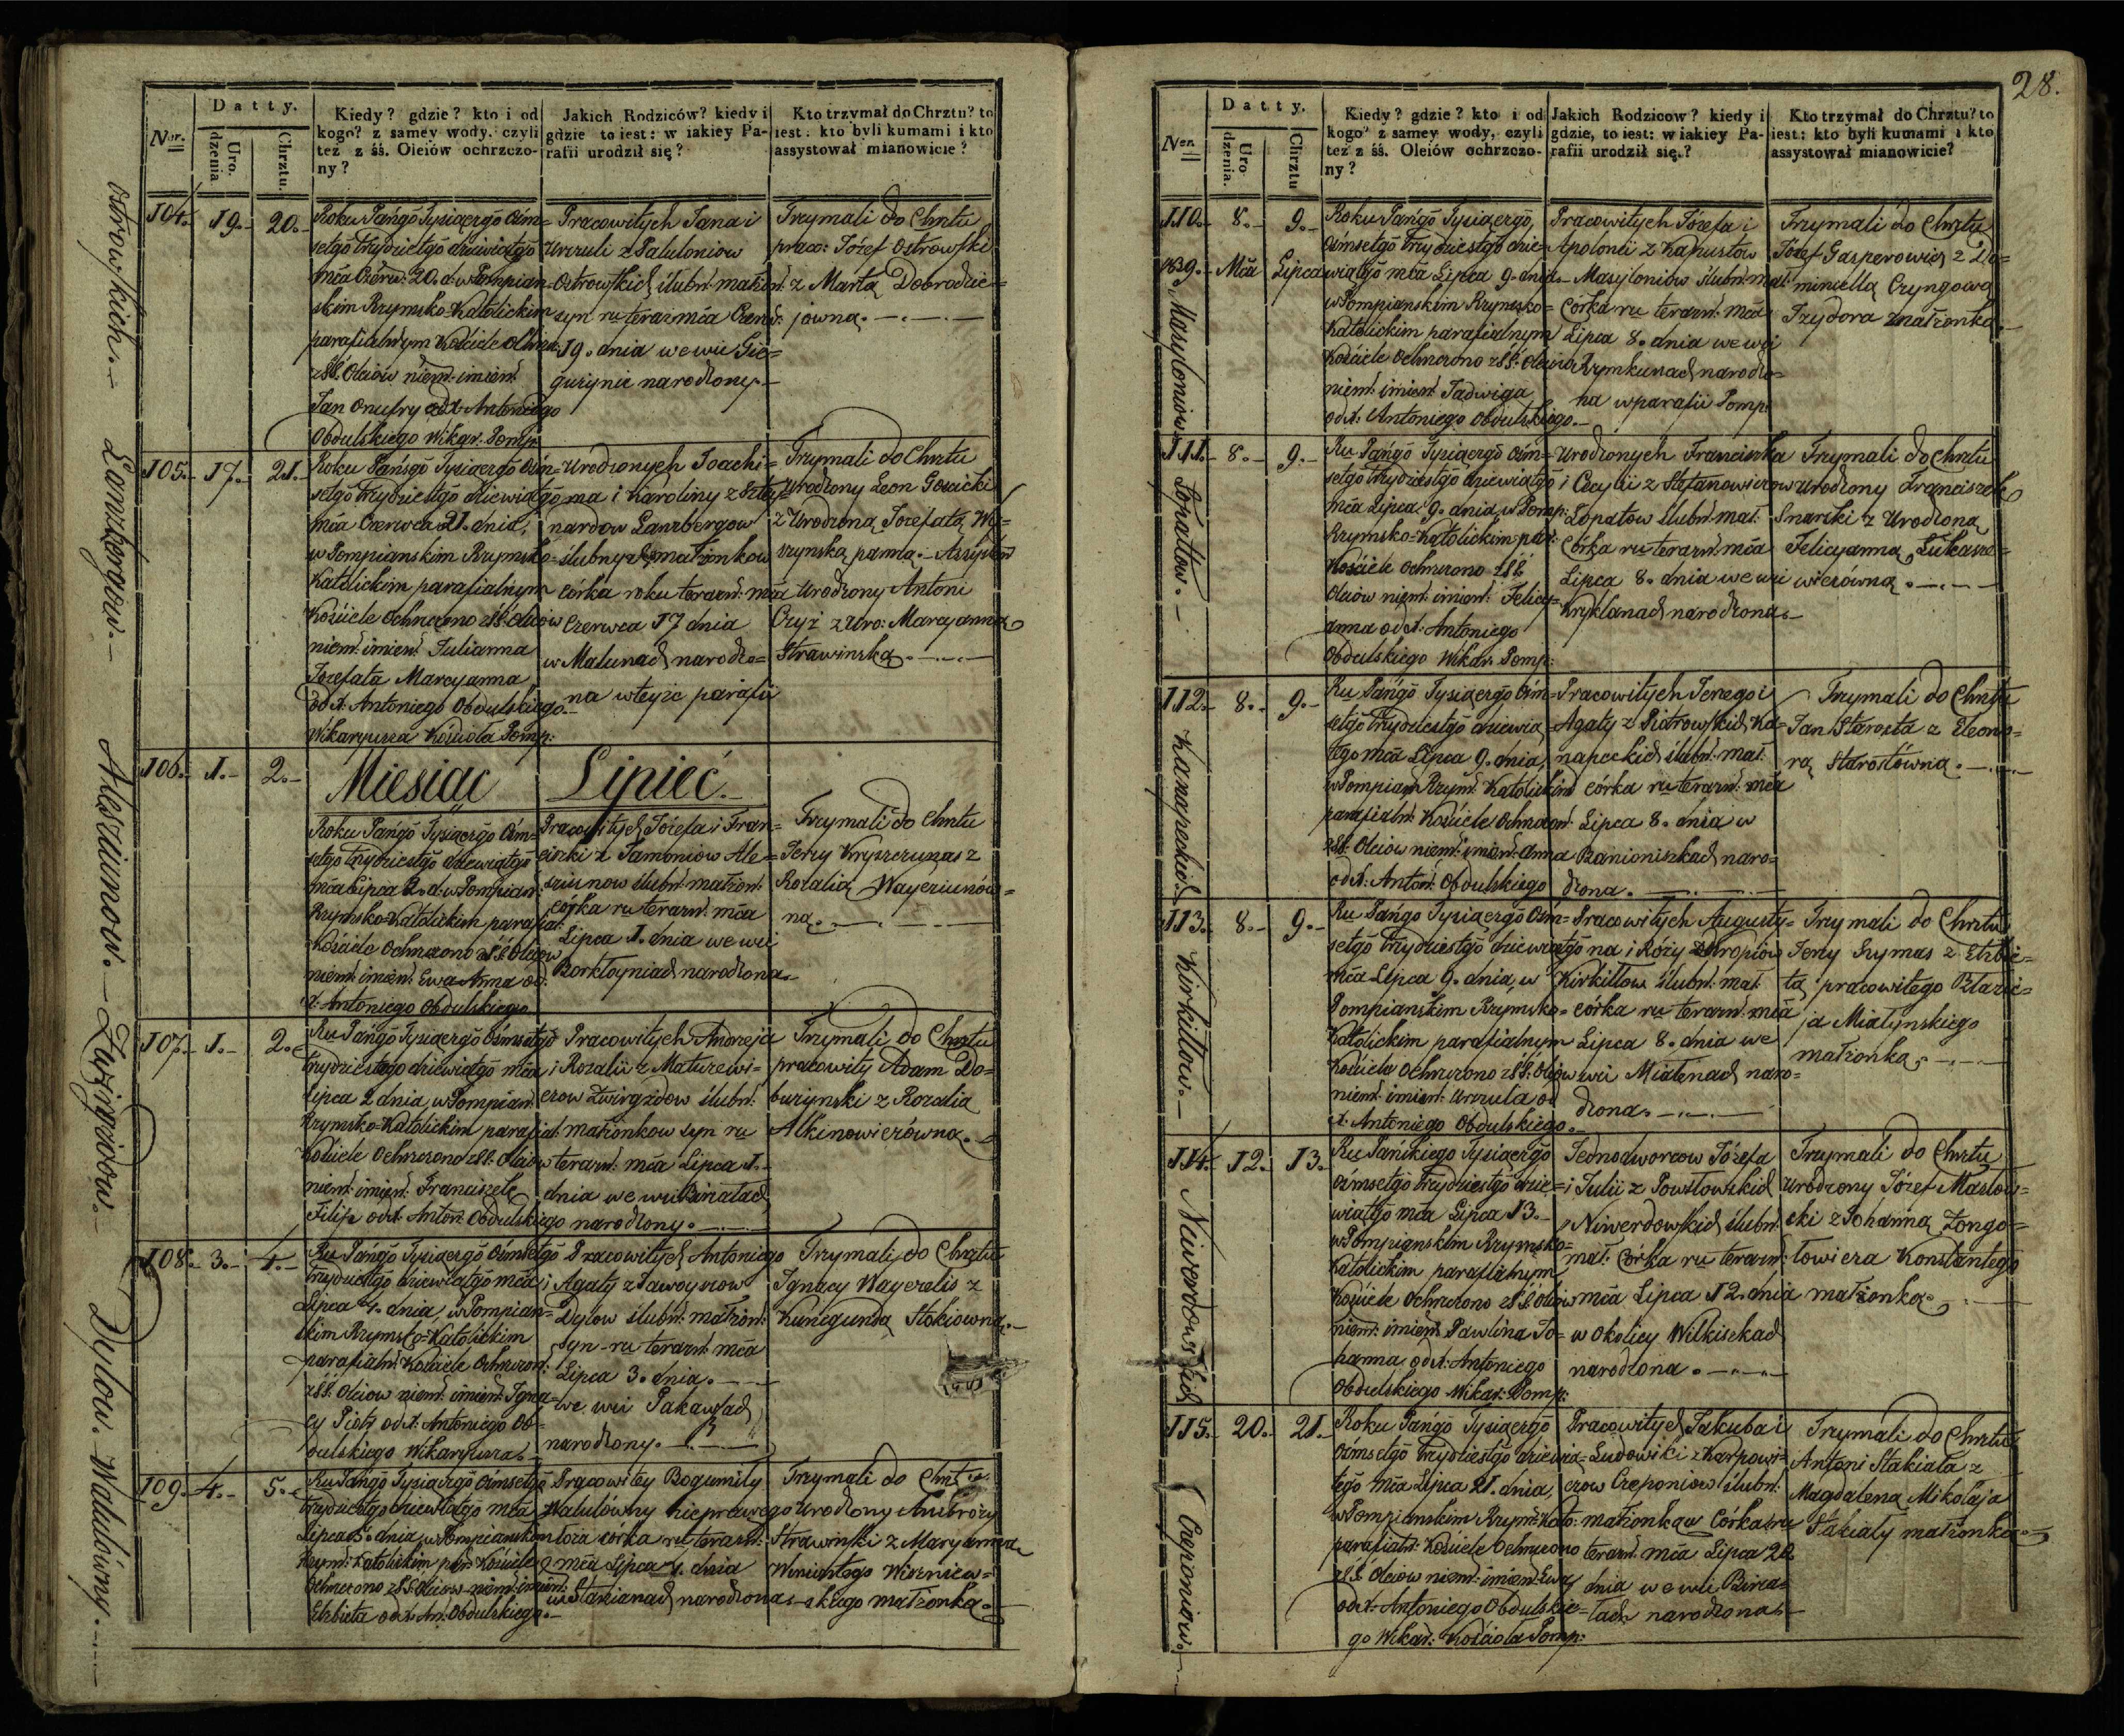 28.
Datty.
Kiedy? gdzie? kto i od
kogo? z samey wody, czyli
też z śś. Oleiów ochrzczo-
ny?
Jakich Rodziców? kiedy i
gdzie to iest: w iakiey Pa-
rafii urodził się?
Kto trzymał do Chrztu? to
iest: kto byli kumami i kto
assystował mianowicie?
Ner.
Uro.
dzenia
Chrztu.
Ostrowskich.
104. 19. 20.
Roku Pańgo Tysiącgo Óśm=
setgo Trzydziestgo dziewiątgo
mca Czerw: 20. d. w Pompian=
skim Rzymsko-Katolickim
parafialnym Kościele
z SS. Oleiów niem: imień:
Jan Onufry od X. Antoniego
Obdulskiego Wikar: Pomp:
Pracowitych Jana i
Urszuli z
Ostrowskich ślubn: małżon:
syn ru teraź: mca Czerw:
19. dnia we wsi Gie=
gużynie narodzony.
Trzymali do Chrztu
praco: Józef Ostrowski
z Martą Dobrodzie=
jowną.
Lanzbergow.
105. 17. 21.
Roku Pańsgo Tysiącgo Óśm=
setgo Trzydziestgo dziewiąt
mca Czerwca 21. dnia,
w Pompianskim Rzymsko=
Katolickim parafialnym
Kościele Ochrzczono z SS. Oleiów
niem: imień: Julianna
Jozefata Marcyanna
od X. Antoniego Obdulskiego
Wikaryusza Kościoła Pomp:
Urodzonych Joachi=
ma i Karoliny z
nardow Lanzbergow
ślubnych małżonkow
córka roku terazn: mca
Czerwca 17 dnia
w Malunach narodzo=
na w teyże parafii
Trzymali do Chrztu
Urodzony Leon Gosicki
z Urodzoną Jozefatą Wy=
szynską panną. Assystow:
Urodzony Antoni
Czyż z Uro: Marcyanną
Strawinską.
Miesiąc Lipieć.
Aleszunow.
106. 1. 2.
Roku Pańgo Tysiącgo Óśm=
setgo Trzydziestgo dziewiątgo
mca Lipca 2. d. w Pompian:
Rzymsko-Katolickim parafial:
Kościele Ochrzczono z SS. Oleiow
niem: imień: Ewa Anna od
X. Antoniego Obdulskiego
Pracowitych Józefa i Fran=
ciszki z Jamoniow Ale=
sziunow ślubn: małżon:
córka ru terazn: mca
Lipca 1. dnia we wsi
Borkłoyniach narodzona.
Trzymali do Chrztu
Jerzy Kryszczunas z
Rozalią Wayciunów=
ną.
Zwirgzdow.
107. 1. 2.
Ru Pańgo Tysiącgo Óśmsetgo
trzydziestego dziewiątgo mca
Lipca 2 dnia, w Pompian:
Rzymsko-Katolickim parafial:
Kościele Ochrzczono z SS. Oleiów
niem: imień: Franciszek
Filip od X. Anton: Obdulskiego
Pracowitych Andrzeja
i Rozalii z Matuzewi=
czow Zwirgzdow ślubn:
małżonkow syn ru
terazn: mca Lipca 1.
dnia we wsi Birżatach
narodzony.
Trzymali do Chrztu
pracowity Adam Do=
burzynski z Rozalią
Alkinowiczówną.
Dylow.
108. 3. 4.
Ru Pańgo Tysiącgo Óśmsetgo
Trzydziestgo dziewiątgo mca
Lipca 4. dnia, w Pompian=
skim Rzymsko-Katolickim
parafialn: Kościele Ochrzczon:
z SS. Oleiow niem: imień: Igna=
cy Piotr od X. Antoniego Ob=
dulskiego Wikaryusza
Pracowitych Antoniego
i Agaty z
Dylow ślubn: małżon:
syn ru terazn: mca
Lipca 3. dnia.
we wsi
narodzony.
Trzymali do Chrztu
Ignacy Wayczelis z
Kunegundą Stokiowną.
Walulówny.
109. 4. 5.
Ru Pańgo Tysiącgo Óśmsetgo
trzydziestgo dziewiątgo mca
Lipca 5. dnia, w Pompianskim
Rzym: Katolickim par: Kościele
Ochrzczono z SS. Oleiow niem: imień:
Elżbieta od X. An: Obdulskiego.
Pracowitey Bogumiły
Walulówny nieprawego
łoża córka ru terazn:
mca Lipca 4. dnia
w Staniunach narodzona.
Trzymali do Chrztu
Urodzony Ambroży
Strawinski z Maryanną
Wincentego Wiszniew=
skiego małżonką.
Datty.
Ner.
Uro
dzenia.
Chrztu
Kiedy? gdzie? kto i od
kogo? z samey wody, czyli
też z śś. Oleiów ochrzczo-
ny?
Jakich Rodzicow? kiedy i
gdzie, to iest: w iakiey Pa-
rafii urodził się.?
Kto trzymał do Chrztu? to
iest: kto byli kumami i kto
assystował mianowicie?
Masyloniow
110. 8. 9.
1839. Mca Lipca
Roku Pańgo Tysiącgo,
Óśmsetgo Trzydziestgo dzie=
wiątgo mca Lipca 9. dnia
w Pompianskim Rzymsko=
Katolickim parafialnym
Kościele Ochrzczono z SS. Oleiów
niem: imień: Jadwiga
od X. Antoniego Obdulskiego.
Pracowitych Józefa i
Apolonii z Kapustow
Masyloniów ślubn: mał:
Córka ru terazn: mca
Lipca 8. dnia we wsi
Rzymkunach narodzo=
na w parafii Pomp:
Trzymali do Chrztu
Józef Gasperowicz z Do=
minellą Czyngową
Izydora małżonką.
Łopattow.
111. 8. 9.
Ru Pańgo Tysiącgo Óśm=
setgo Trzydziestgo dziewiątgo
mca Lipca 9. dnia, w Pomp:
Rzymsko-Katolickim par:
Kościele Ochrzczono z SS.
Oleiów niem: imień: Felicy=
anna od X. Antoniego
Obdulskiego Wikar: Pomp:
Urodzonych Franciszka
i Cecylii z Stefanowiczow
Łopatow ślubn: mał:
Córka ru terazn: mca
Lipca 8. dnia we wsi
Kryklanach narodzona.
Trzymali do Chrztu
Urodzony Franciszek
Snarski z Urodzoną
Felicyanną Łukasze=
wiczówną.
Kanapeckich
112. 8. 9.
Ru Pańgo Tysiącgo Óśm=
setgo Trzydziestgo dziewią=
tego mca Lipca 9. dnia,
w Pompian: Rzym: Katolickim
parafialn: Kościele Ochrzczon:
z SS. Oleiów niem: imień: Anna
od X. Anton: Obdulskiego
Pracowitych Jerzego i
Agaty z Piotrowskich Ka=
napeckich ślubn: mał:
córka ru terazn: mca
Lipca 8. dnia w
Banioniszkach naro=
dzona.
Trzymali do Chrztu
Jan Starosta z Eleono=
rą Starostówną.
Kirkiłłow.
113. 8. 9.
Ru Pańgo Tysiącgo Óśm=
setgo Trzydziestgo dziewiątgo
mca Lipca 9. dnia, w
Pompianskim Rzymsko=
Katolickim parafialnym
Kościele Ochrzczono z SS. Oleiów
niem: imień: Urszula od
X. Antoniego Obdulskiego.
Pracowitych Augusty=
na i Róży z
Kirkiłłow ślubn: mał:
córka ru terazn: mca
Lipca 8. dnia we
wsi Miałenach naro=
dzona.
Trzymali do Chrztu
Jerzy Szymas z Elżbie=
tą pracowitego Błaże=
ja Miałynskiego
małżonką.
Niwerdowskich
114. 12. 13.
Ru Pańskiego Tysiącgo
óśmsetgo Trzydziestgo dzie=
wiątgo mca Lipca 13.
w Pompianskim Rzymsko=
Katolickim parafialnym
Kościele Ochrzczono z SS. Oleiów
niem: imień: Pawlina Jo=
hanna od X. Antoniego
Obdulskiego Wikar: Pomp:
Jednodworcow Józefa
i Julii z Powsłowskich
Niwerdowskich ślubn:
mał: Córka ru terazn:
mca Lipca 12. dnia
w Okolicy Wilkiszkach
narodzona.
Trzymali do Chrztu
urodzony Józef Masłow=
ski z Johanną Zongo=
łłowicza Konstantego
małżonką.
Czeponiow.
115. 20. 21.
Roku Pańgo Tysiącgo
Óśmsetgo Trzydziestgo dziewią=
tego mca Lipca 21. dnia,
w Pompianskim Rzym: Kato:
parafialn: Kościele Ochrzczono
z SS. Oleiów niem: imień: Ewa
od X. Antoniego Obdulskie=
go Wikar: Kościoła Pomp:
Pracowitych Jakuba i
Ludowiki z Karpowi=
czow Czeponiow ślubn:
małżonkow Córka ru
terazn: mca Lipca 20.
dnia we wsi Birża=
łach narodzona.
Trzymali do Chrztu
Antoni Stakiała z
Magdaleną Mikołaja
Stakiały małżonką.